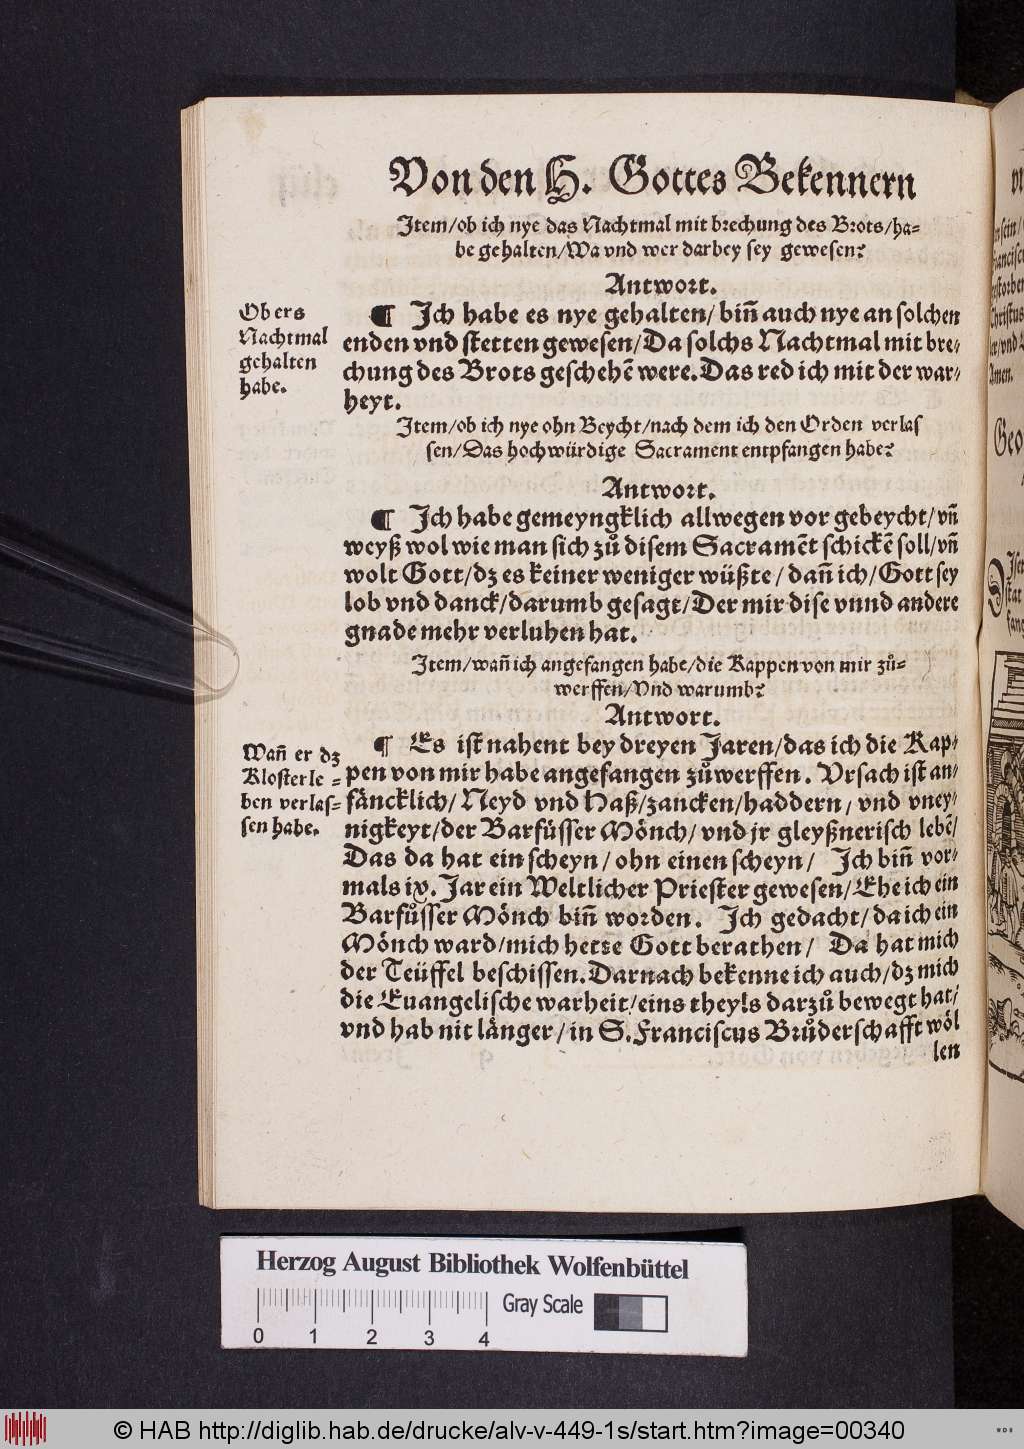 Von den H. Gottes Bekennern
Item/ob ich nye das Nachtmal mit brechung des Brots/ha=
be gehalten/Wa vnd wer darbey sey gewesen?
Antwort.
Ob ers
Nachtmal
gehalten
habe.
¶ Ich habe es nye gehalten/ biñ auch nye an solchen
enden vnd stetten gewesen/Da solchs Nachtmal mit bre=
chung des Brots geschehẽ were. Das red ich mit der war=
heyt.
Item/ob ich nye ohn Beycht/nach dem ich den Orden verlas
sen/Das hochwürdige Sacrament entpfangen habe?
Antwort.
¶ Ich habe gemeyngklich allwegen vor gebeycht/vñ
weyß wol wie man sich zů disem Sacramẽt schickẽ soll/vñ
wolt Gott/dz es keiner weniger wüßte/ dañ ich/Gott sey
lob vnd danck/darumb gesagt/Der mir dise vnnd andere
gnade mehr verluhen hat.
Item/wañ ich angefangen habe/die Kappen von mir zů=
werffen/Vnd warumb?
Antwort.
Wañ er dz
Klosterle=
ben verlas=
sen habe.
¶ Es ist nahent bey dreyen Jaren/das ich die Kap=
pen von mir habe angefangen zůwerffen. Vrsach ist an=
fäncklich/ Neyd vnd Haß/zancken/haddern/ vnd vney=
nigkeyt/der Barfüsser Mönch/ vnd jr gleyßnerisch lebẽ/
Das da hat ein scheyn/ ohn einen scheyn/ Ich biñ vor=
mals ix. Jar ein Weltlicher Priester gewesen/Ehe ich ein
Barfůsser Mönch biñ worden. Ich gedacht/da ich ein
Mönch ward/mich hette Gott berathen/ Da hat mich
der Teüffel beschissen. Darnach bekenne ich auch/dz mich
die Euangelische warheit/eins theyls darzů bewegt hat/
vnd hab nit länger/in S. Franciscus Brůderschafft wöl
len
Amen.
Herzog August Bibliothek Wolfenbüttel
Gray Scale
0 1 2 3 4
© HAB http://diglib.hab.de/drucke/alv-v-449-1s/start.htm?image=00340